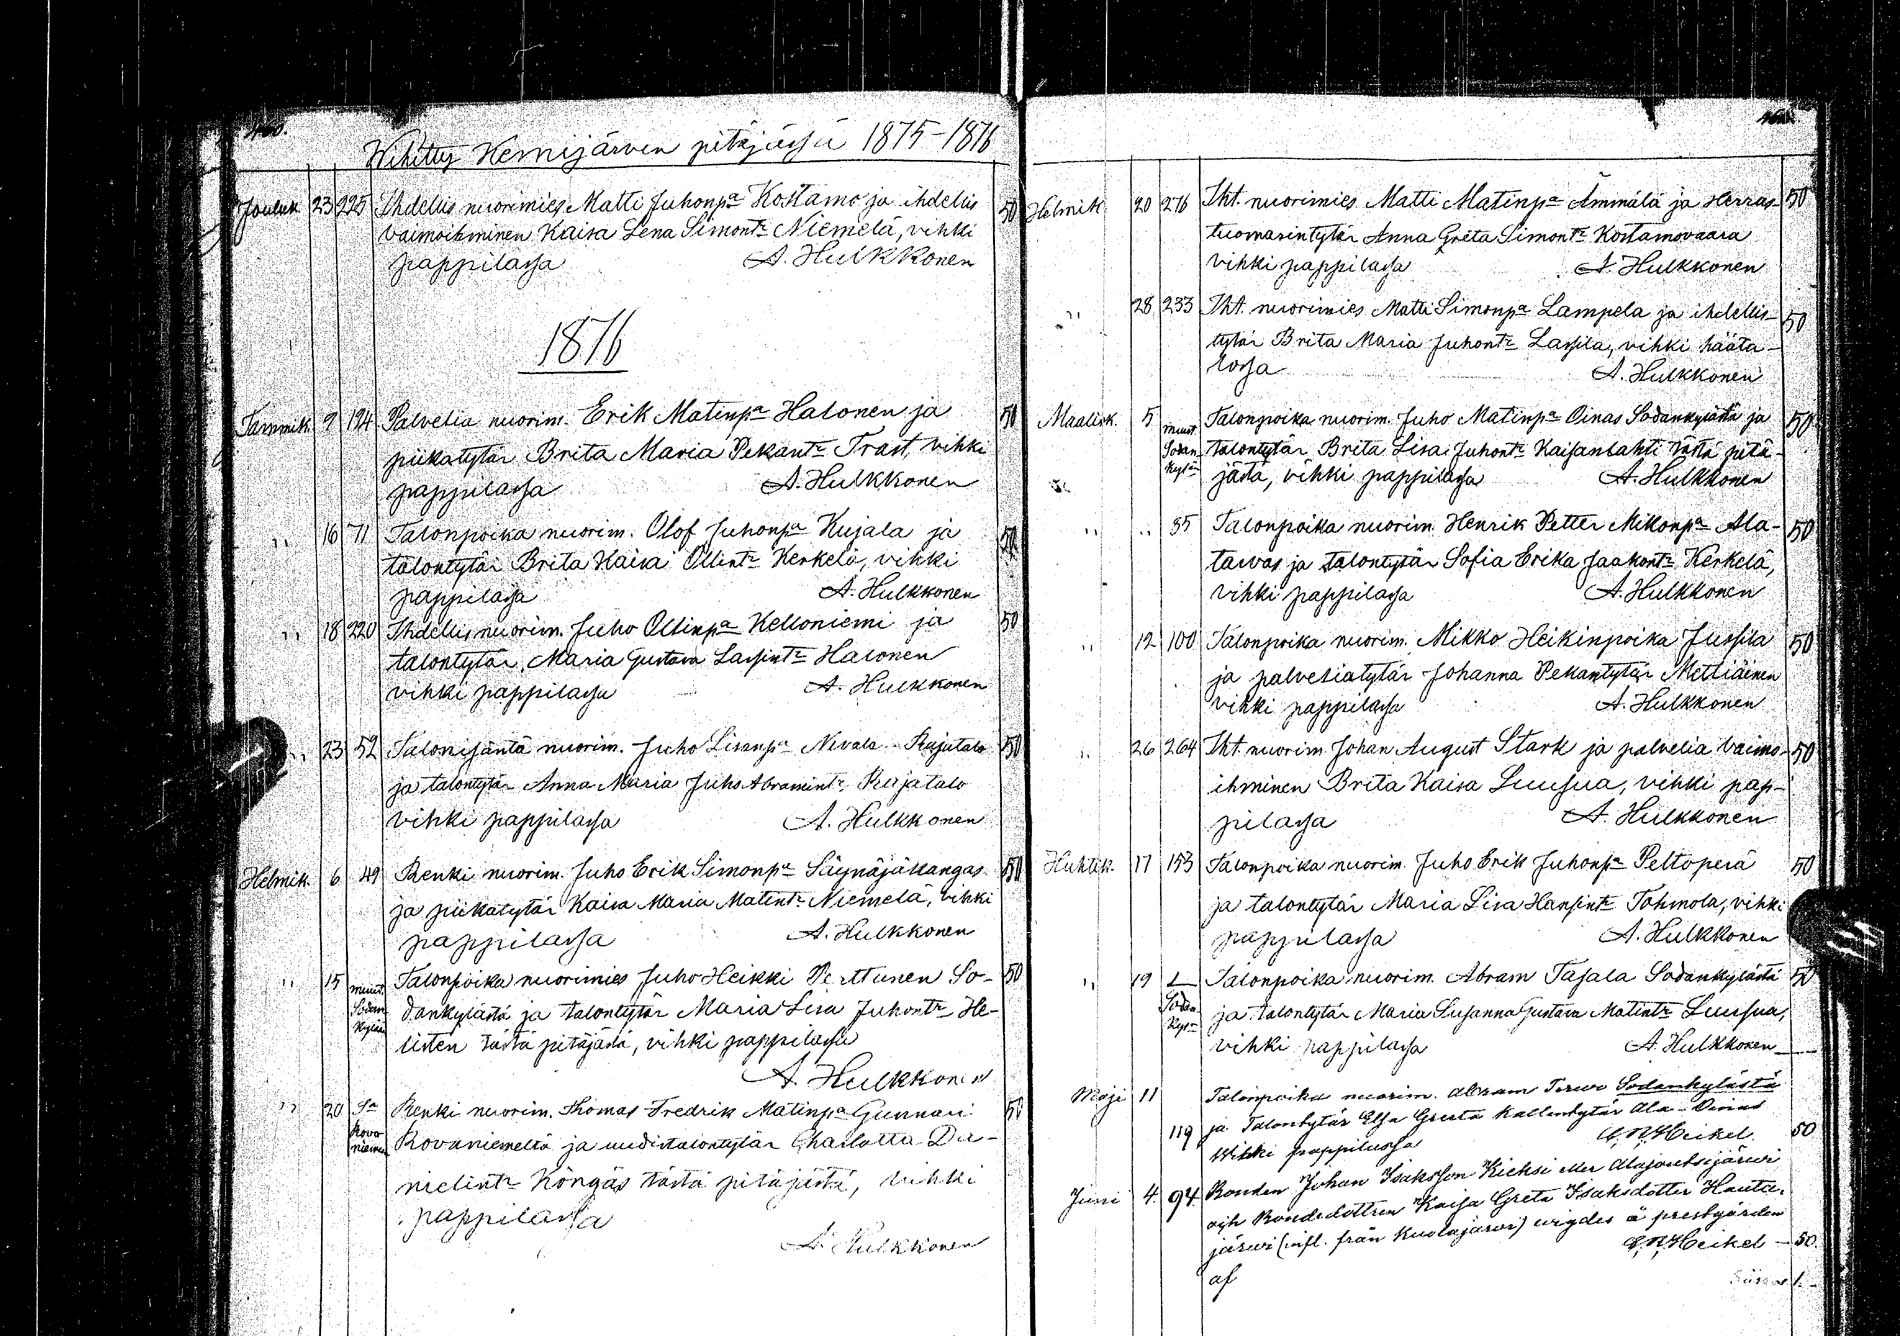 460.
Wihitty Kemijärven pitäjässä 1875-1876
Jouluk 23 225 Ihdellis nuorimies Matti Juhonpa Kostamo ja ihdellis 50
vaimoihminen Kaisa Lena Simontr Niemelä, vihki
pappilassa A. Hulkkonen
1876
Tammik. 9 194 Palvelia nuorim. Erik Matinpa Halonen ja 50
piikatytär Brita Maria Pekantr Trast, vihki
pappilassa A. Hulkkonen
,, 16 71 Talonpoika nuorim. Olof Juhonpa Kujala ja 50
talontytär Brita Kaisa Ollintr Kerkelä, vihki
pappilassa A. Hulkkonen
,, 18 220 Ihdellis nuorim. Juho Ollinpa Kelloniemi ja 50
talontytär, Maria Gustava Lassintr Halonen
vihki pappilassa A. Hulkkonen
,, 23 52 Talonisäntä nuorim. Juho Nivala Rajatalo 50
ja talontytär Anna Maria Juho Abramintr Rajatalo
vihki pappilassa A. Hulkkonen
Helmik. 6 49 Renki nuorim. Juho Erik Simonpa Säynäjäkangas 50
ja piikatytär Kaisa Maria Matintr Niemelä, vihki
pappilassa A. Hulkkonen
,, 15 muut. Talonpoika nuorimies Juho Heikki Perttunen So- 50
Sodankylään dankylästä ja talontytär Maria Lisa Juhontr He-
listen tästä pitäjästä, vihki pappilassa
A. Hulkkonen
,, 20 Sa Renki nuorim. Thomas Fredrik Matinpa Gunnari 50
Rovaniemeen Rovaniemeltä ja uudistalontytär Charlotta Da-
nielintr Köngäs tästä pitäjästä, vihki
pappilassa
A. Hulkkonen
Helmik 20 276 Iht. nuorimies Matti Matinpa Ämmälä ja Herras- 50
tuomarintytär Anna Greta Simontr Kostamovaara
vihki pappilassa A. Hulkkonen
,, 28 233 Iht. nuorimies Matti Simonpa Lampela ja ihdellis- 50
tytär Brita Maria Juhontr Lassila, vihki hääta-
lossa A. Hulkkonen
Maalisk. 5 muut. Talonpoika nuorim. Juho Matinpa Oinas Sodankylästä ja 50
Sodan- talontytär Brita Lisa Juhontr Kaisanlahti tästä pitä-
kylään jästä, vihki pappilassa A. Hulkkonen
,, ,, 35 Talonpoika nuorim. Henrik Petter Mikonpa Ala- 50
tarvas ja talontytär Sofia Erika Jaakontr Kerkelä,
vihki pappilassa A. Hulkkonen
,, 12 100 Talonpoika nuorim. Mikko Heikinpoika Jussila 50
ja palveliatytär Johanna Pekantytär Mettiäinen
vihki pappilassa A. Hulkkonen
,, 26 264 Iht. nuorim. Johan August Stark ja palvelia vaimo- 50
ihminen Brita Kaisa Luusua, vihki pap-
pilassa A. Hulkkonen
Huhtik. 17 153 Talonpoika nuorim. Juho Erik Juhonpa Peltoperä 50
ja talontytär Maria Lisa Hansintr Tohmola, vihki
pappilassa A. Hulkkonen
,, 19 Talonpoika nuorim. Abram Tajala Sodankylästä 50
Sodankyl ja talontytär Maria Susanna Gustava Matintr Luusua,
vihki pappilassa A. Hulkkonen
Maji 11 Talonpoika nuorim. Abram Sodankylästä
119 ja Talontytär Elsa Greeta Kallentytär Ala-
Wihki pappilassa Heikel. 50
Juni 4. 94. Bonden Johan Isaksson Kieksi
och Bondedottren Kaisa Greta Isaksdotter Hauta-
järwi (infl. från Kuolajärvi) wigdes å prestgården
af Heikel - 50.